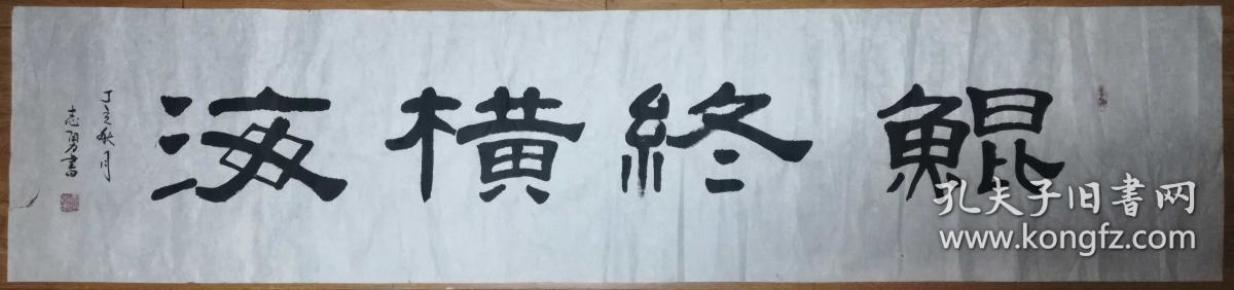 鯤終橫海
丁亥秋月
志勇書
孔夫子旧书网
www.kongfz.com